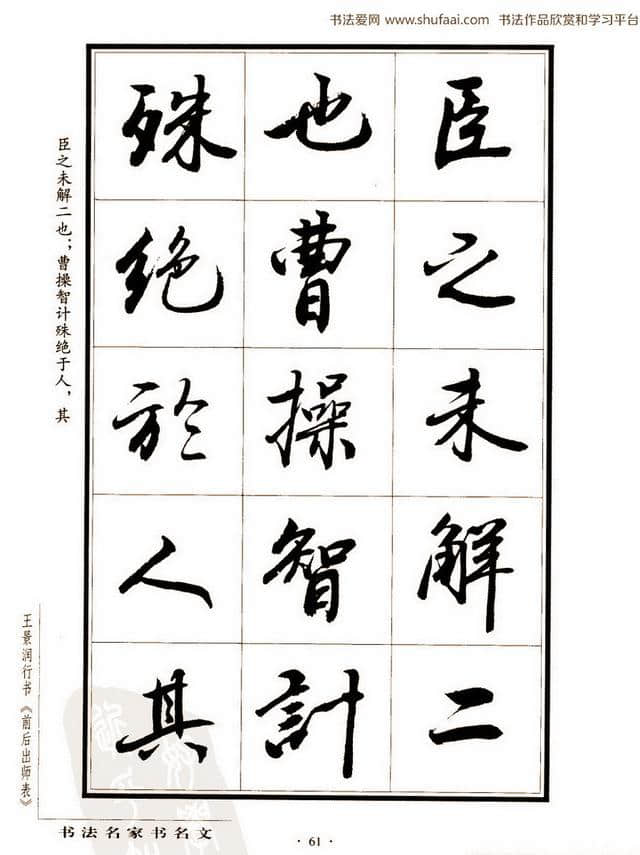 书法爱网 www.shufaai.com 书法作品欣赏和学习平台
臣之未解二
也曹操智計
殊绝於人其
臣之未解二也；曹操智计殊绝于人，其
王景润行书《前后出师表》
书法名家书名文
·61·